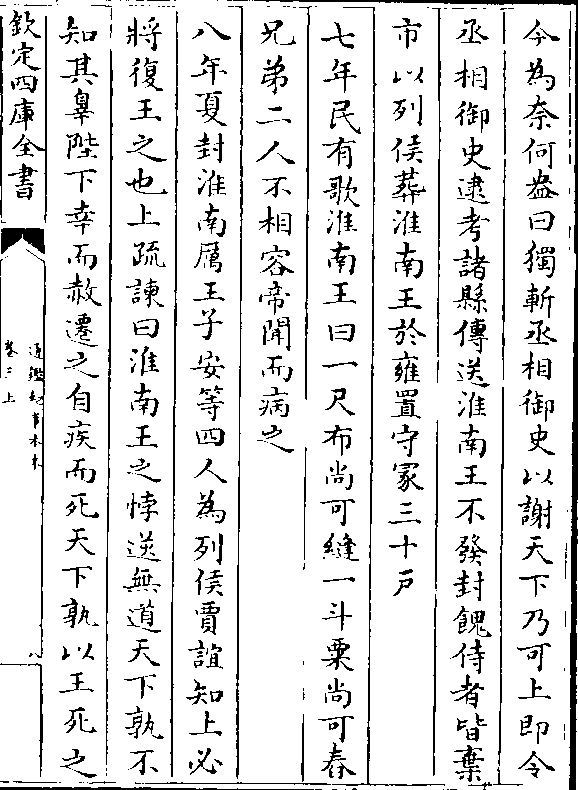 今為奈何盎曰獨斬丞相御史以謝天下乃可上即令
丞相御史逮考諸縣傳送淮南王不發封餽侍者皆棄
市以列侯葬淮南王於雍置守冢三十戸
七年民有歌淮南王曰一尺布尚可縫一斗粟尚可舂
兄弟二人不相容帝聞而病之
八年夏封淮南厲王子安等四人為列侯賈誼知上必
將復王之也上疏諫曰淮南王之悖逆無道天下孰不
知其辠陛下幸而赦遷之自疾而死天下孰以王死之
欽定四庫全書
通鑑紀事本末
卷二上
八